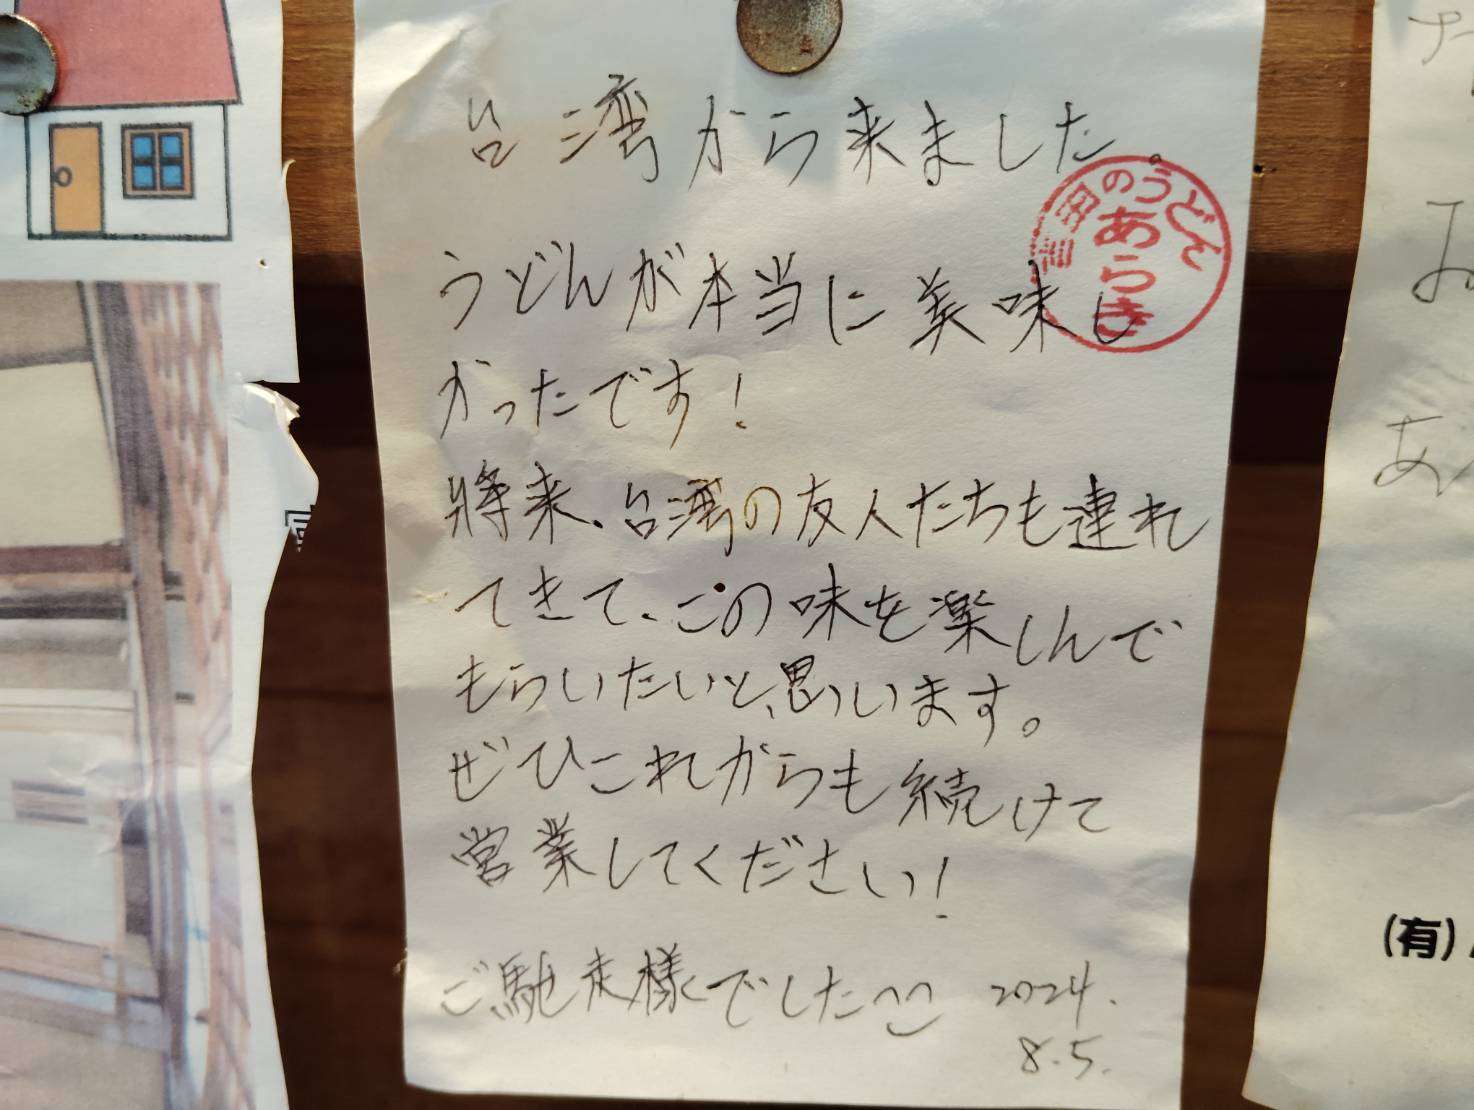 台湾から来ました。
うどんが本当に美味し
かったです!
將来、台湾の友人たちも連れ
てきて、この味を楽しんで
もらいたいと、思います。
ぜひこれからも続けて
営業してください!
ご馳走様でした
2024.
8.5.
のうどん
あらき
(有)